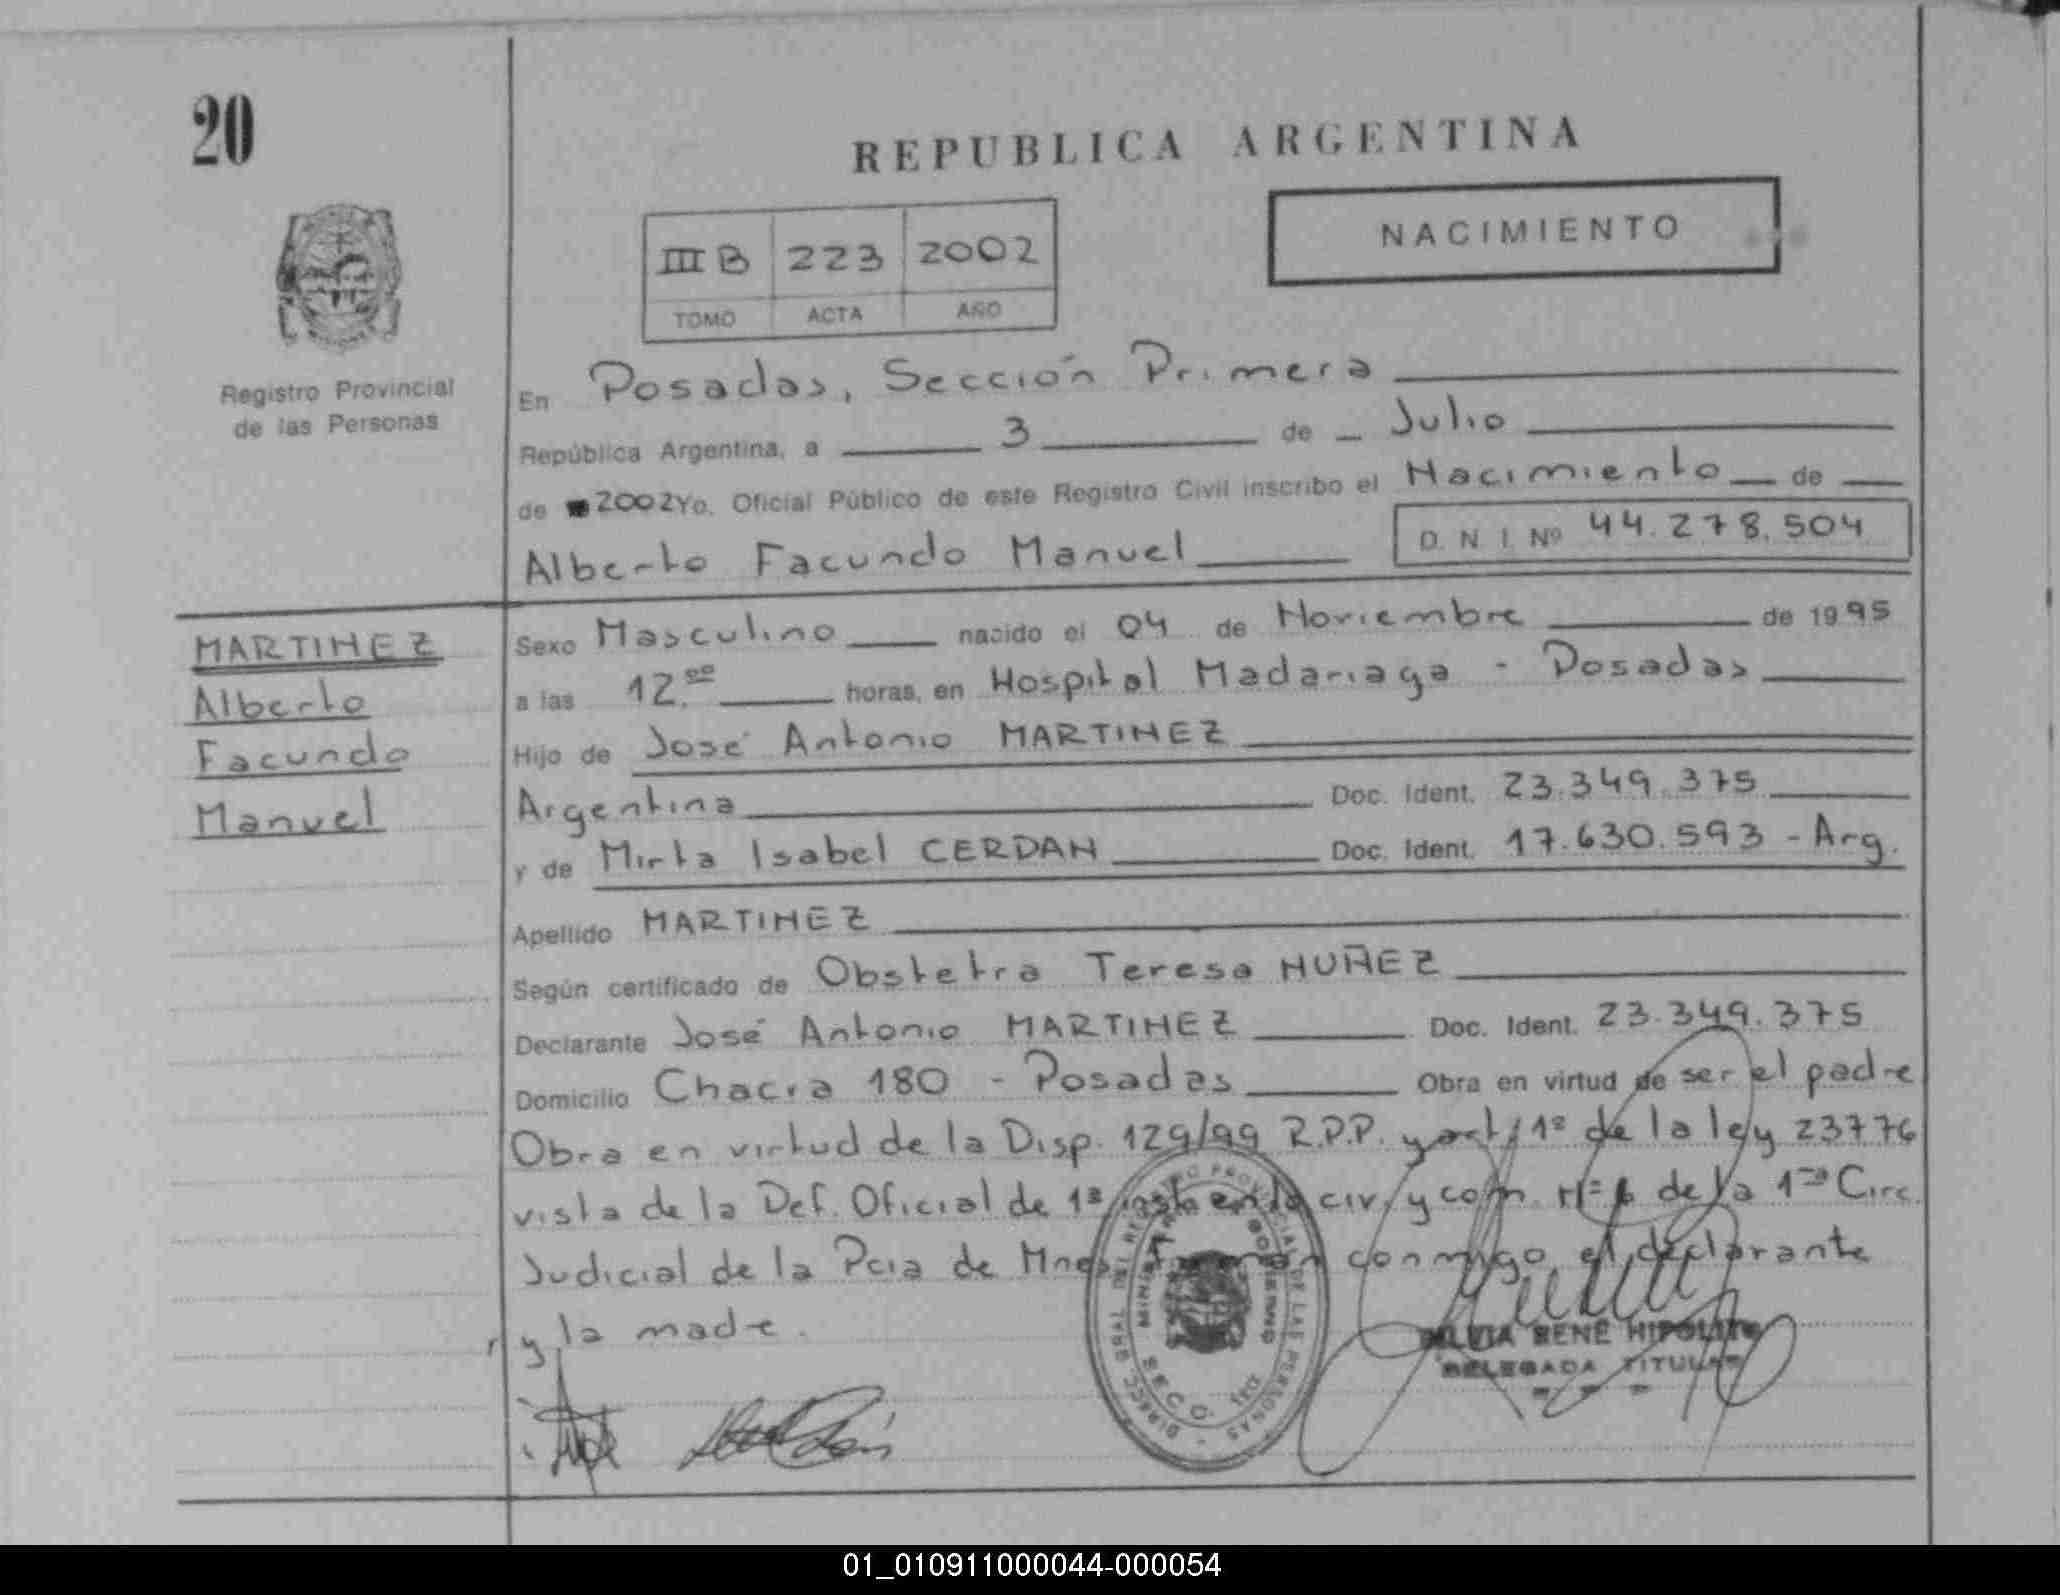 20
REPUBLICA ARGENTINA
NACIMIENTO
III B 223 2002
TOMO ACTA AÑO
Registro Provincial
de las Personas
En Posadas, Sección Primera
República Argentina, a 3 de Julio
de 2002 Yo, Oficial Público de este Registro Civil inscribo el Nacimiento de
Alberto Facundo Manuel D. N. I. Nº 44.278.504
MARTINEZ
Alberto
Facundo
Manuel
Sexo Masculino nacido el 04 de Noviembre de 1995
a las 12.00 horas, en Hospital Madariaga - Posadas
Hijo de José Antonio MARTINEZ
Argentina Doc. Ident. 23.349.375
y de Mirta Isabel CERDAN Doc. Ident. 17.630.593 - Arg.
Apellido MARTINEZ
Según certificado de Obstetra Teresa NUÑEZ
Declarante José Antonio MARTINEZ Doc. Ident. 23.349.375
Domicilio Chacra 180 - Posadas Obra en virtud de ser el padre
Obra en virtud de la Disp. 129/99 R.P.P. y art. 1º de la ley 23776
vista de la Def. Oficial de 1ª en lo civ. y com. Nº 6 de la 1ra Circ.
Judicial de la Pcia de Mnes. Firman conmigo el declarante
y la madre.
DIRECC. GRAL. DEL REGISTRO PROVINCIAL DE LAS PERSONAS
MINISTERIO DE GOBIERNO
SECC. 1ra
SILVIA RENE HIPOLITO
DELEGADA TITULAR
01_010911000044-000054